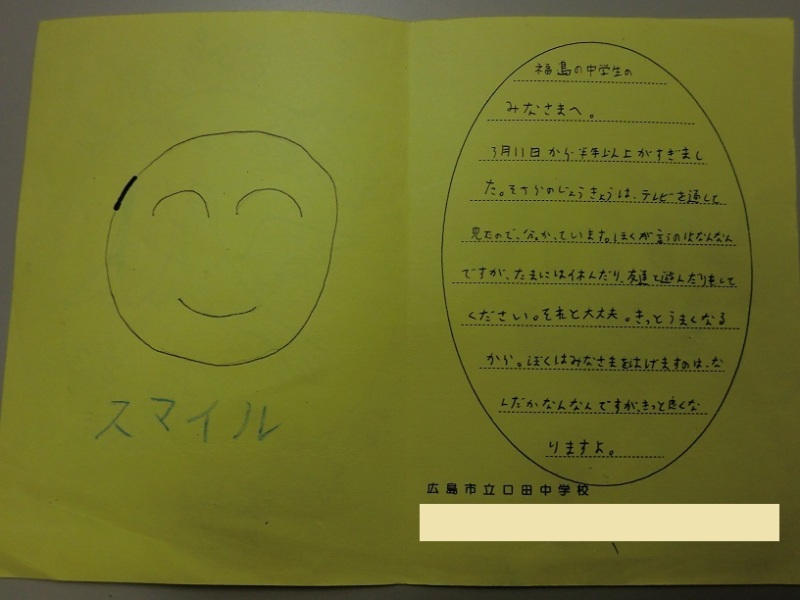 スマイル
福島の中学生の
みなさまへ。
3月11日から半年以上がすぎまし
た。そちらのじょうきょうは、テレビを通して
見たので、分かっています。ぼくが言うのはなんなん
ですが、たまには休んだり、友達と遊んだりまして
ください。それと大丈夫。きっとうまくなる
から。ぼくはみなさまをはげますのは、な
んだかなんなんですが、きっと良くな
りますよ。
広島市立口田中学校